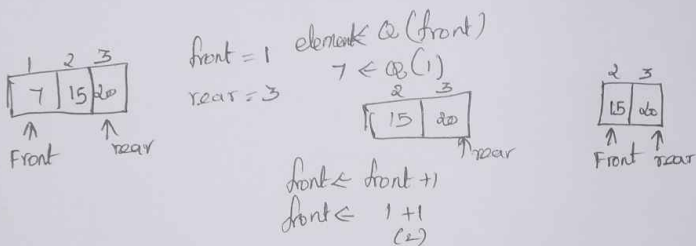 1 2 3
7 15 20
Front rear
front = 1
rear = 3
element ← Q (front)
7 ← Q (1)
2 3
15 20
rear
front ← front +1
front ← 1 +1
(2)
2 3
15 20
Front rear